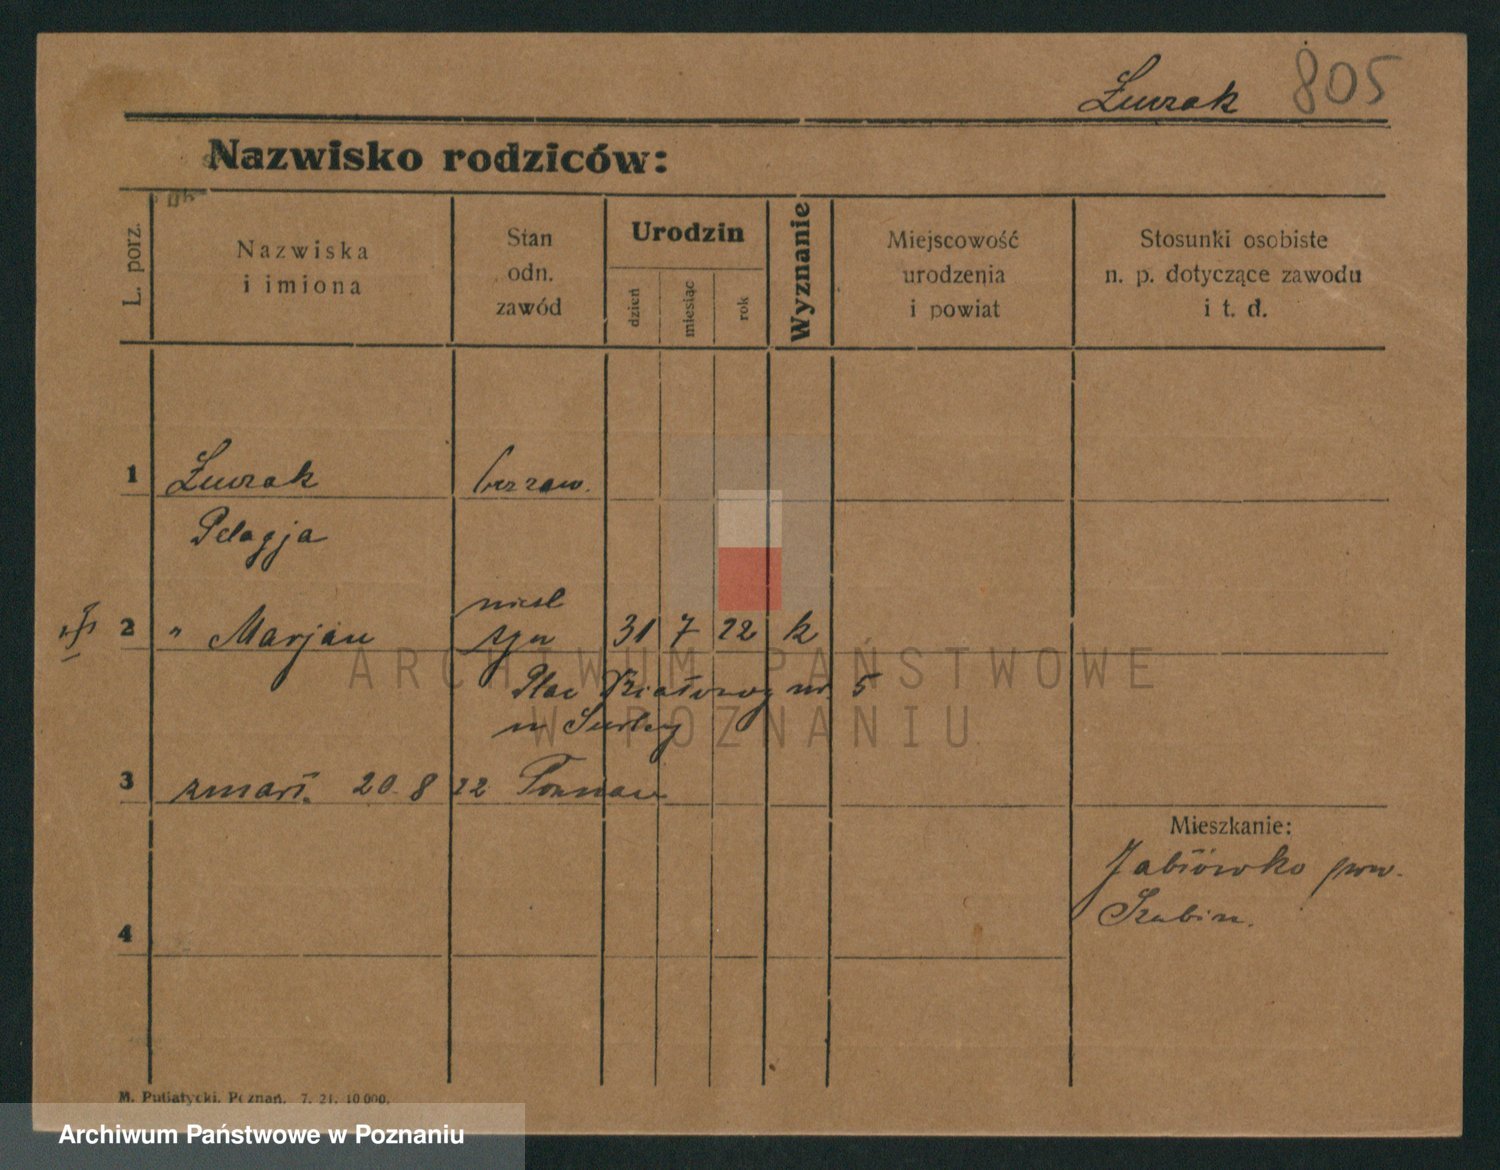 Żurzak 805
Nazwisko rodziców:
L. porz.
Nazwiska
i imiona
Stan
odn.
zawód
Urodzin
dzień
miesiąc
rok
Wyznanie
Miejscowość
urodzenia
i powiat
Stosunki osobiste
n. p. dotyczące zawodu
i t. d.
1 Żurzak bezzaw.
Pelagja
niesl
2 " Marjan syn 31 7 22 k
ARCHIWUM PAŃSTWOWE
Plac nr. 5
W POZNANIU
3 zmarł. 20. 8 22 Poznań
Mieszkanie:
Jabłówko pow.
Szubin.
4
M. Putiatycki, Poznań. 7. 21. 10 000.
Archiwum Państwowe w Poznaniu